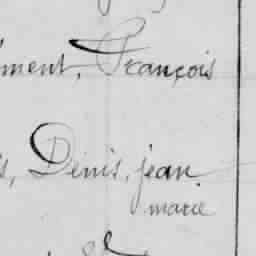 ment, François
s, Denis, jean
marie